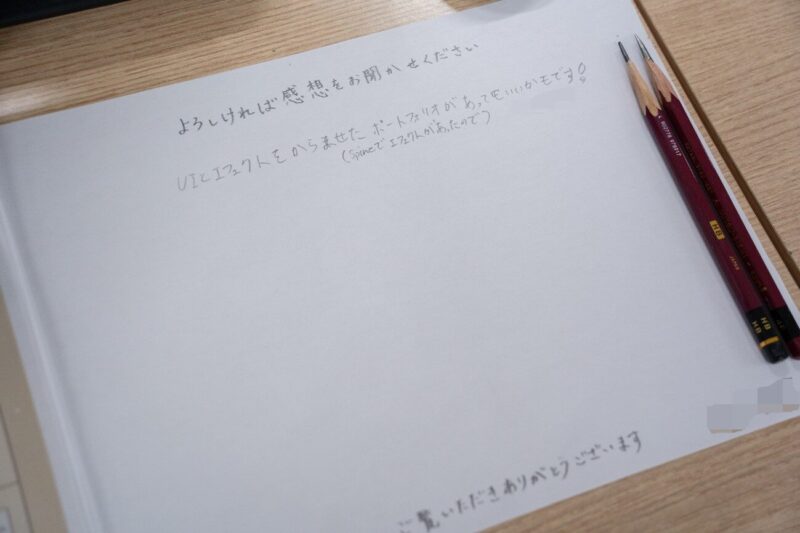 よろしければ感想をお聞かせください
UIとエフェクトをからませたポートフォリオがあってもいいかもです!
(Spineでエフェクトがあったので)
ご覧いただきありがとうございます
HB
HB
HB
JAPAN